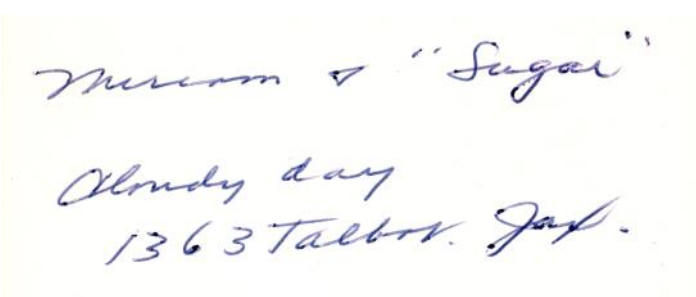 Miriam & "Sugar"
Cloudy day
1363 Talbot. Jax.